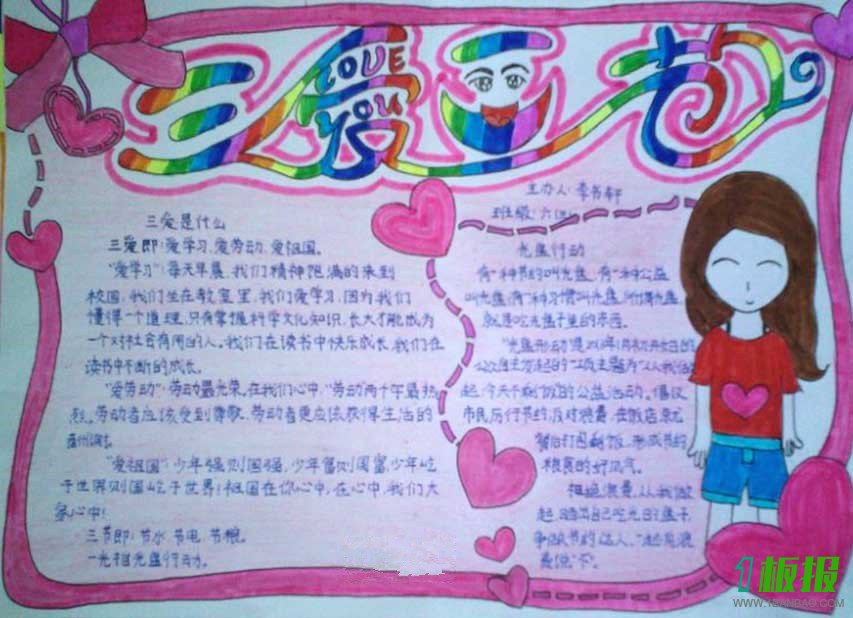 三爱三节
LOVE
YOU
三爱是什么
三爱即:爱学习、爱劳动、爱祖国。
"爱学习":每天早晨,我们精神饱满的来到
校园,我们坐在教室里,我们爱学习,因为我们
懂得一个道理,只有掌握科学文化知识,长大才能成为
一个对社会有用的人。我们在读书中快乐成长,我们在
读书中不断的成长。
"爱劳动":劳动最光荣,在我们心中,"劳动"两个字最热
烈。劳动者应该受到尊敬,劳动者更应该获得生活的
"爱祖国":少年强则国强,少年富则国富,少年屹
于世界则国屹于世界!祖国在你心中,在心中,我们大
家心中!
三节即:节水、节电、节粮。
光盘行动。
主办人:李书轩
班级:六
光盘行动
有一种节约叫光盘,有一种公益
叫光盘,有一种习惯叫光盘。所谓光盘,
就是吃光盘子里的东西。
"光盘行动"是
公众自主发起的
起,今天不剩饭"的公益活动。倡议
市民厉行节约,反对浪费,在饭店就
餐后打包剩饭,形成节约
粮食的好风气。
拒绝浪费,从我做
起,
争做节约达人,
1板报
WWW.1BANBAO.COM